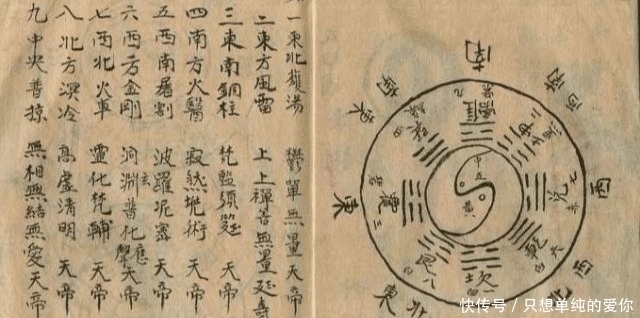 南
西南
西
西
北
東
東
東南
離 九
坤 二
兌 七 赤
乾 六 白
坎
艮 八
震 三
巽 四
中五黄
一東北鑊湯 鬱單無量天帝
二東方風雷 上上禪善無量延壽
三東南銅柱 梵監須筵 天帝
四南方火翳 寂然兜術 天帝
五西南屠割 波羅泥蜜 天帝
六西方金剛 洞玄淵普化應聲 天帝
七西北火車 靈化梵輔 天帝
八北方溟冷 高虛清明 天帝
九中央普掠 無相無結無愛天帝
快传号／只想单纯的爱你